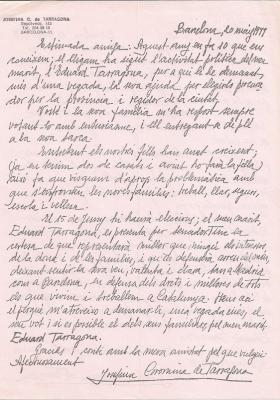 JOSEFINA C. de TARRAGONA
Sepúlveda, 163
BARCELONA-11
Barcelona, 20 maig 1977
Estimada amiga: Aquest any en fa 10 que ens
coneixem; el lligam ha sigut l'activitat política del meu
marit, l'Eduard Tarragona, per a qui he demanat,
més d'una vegada, la teva ajuda, per elegir-lo procura-
dor per la província i regidor de la ciutat.
Vostè i la seva família m'ha respost sempre
votant-lo amb entusiasme, i ell entregant-se de ple
a la seva tasca.
Mentrestant els nostres fills han anat creixent;
(ja en tenim dos de casats i aviat ho farà la filla)
així fa que visquem d'aprop la problemàtica amb
que s'enfronten les noves famílies: treball, llar, segurs,
escola i vellesa.
El 15 de Juny hi haurà eleccions; el meu marit,
Eduard Tarragona, es presenta per senador. Tinc la
certesa de que representarà millor que ningú els interessos
de la dona i de les famílies, i que ho defendrà arreu del món,
deixant sentir la seva veu, valenta i clara, tan a Madrid
com a Barcelona, en defensa dels drets i millores de tots
els que vivim i treballem a Catalunya. Heus ací
el perquè m'atreveixo a demanar-li, una vegada més, el
seu vot i si és possible el dels seus familiars, pel meu marit
Eduard Tarragona.
Gràcies i conti amb la meva amistat pel que vulgui
Afectuosament
Josefina Coromina de Tarragona